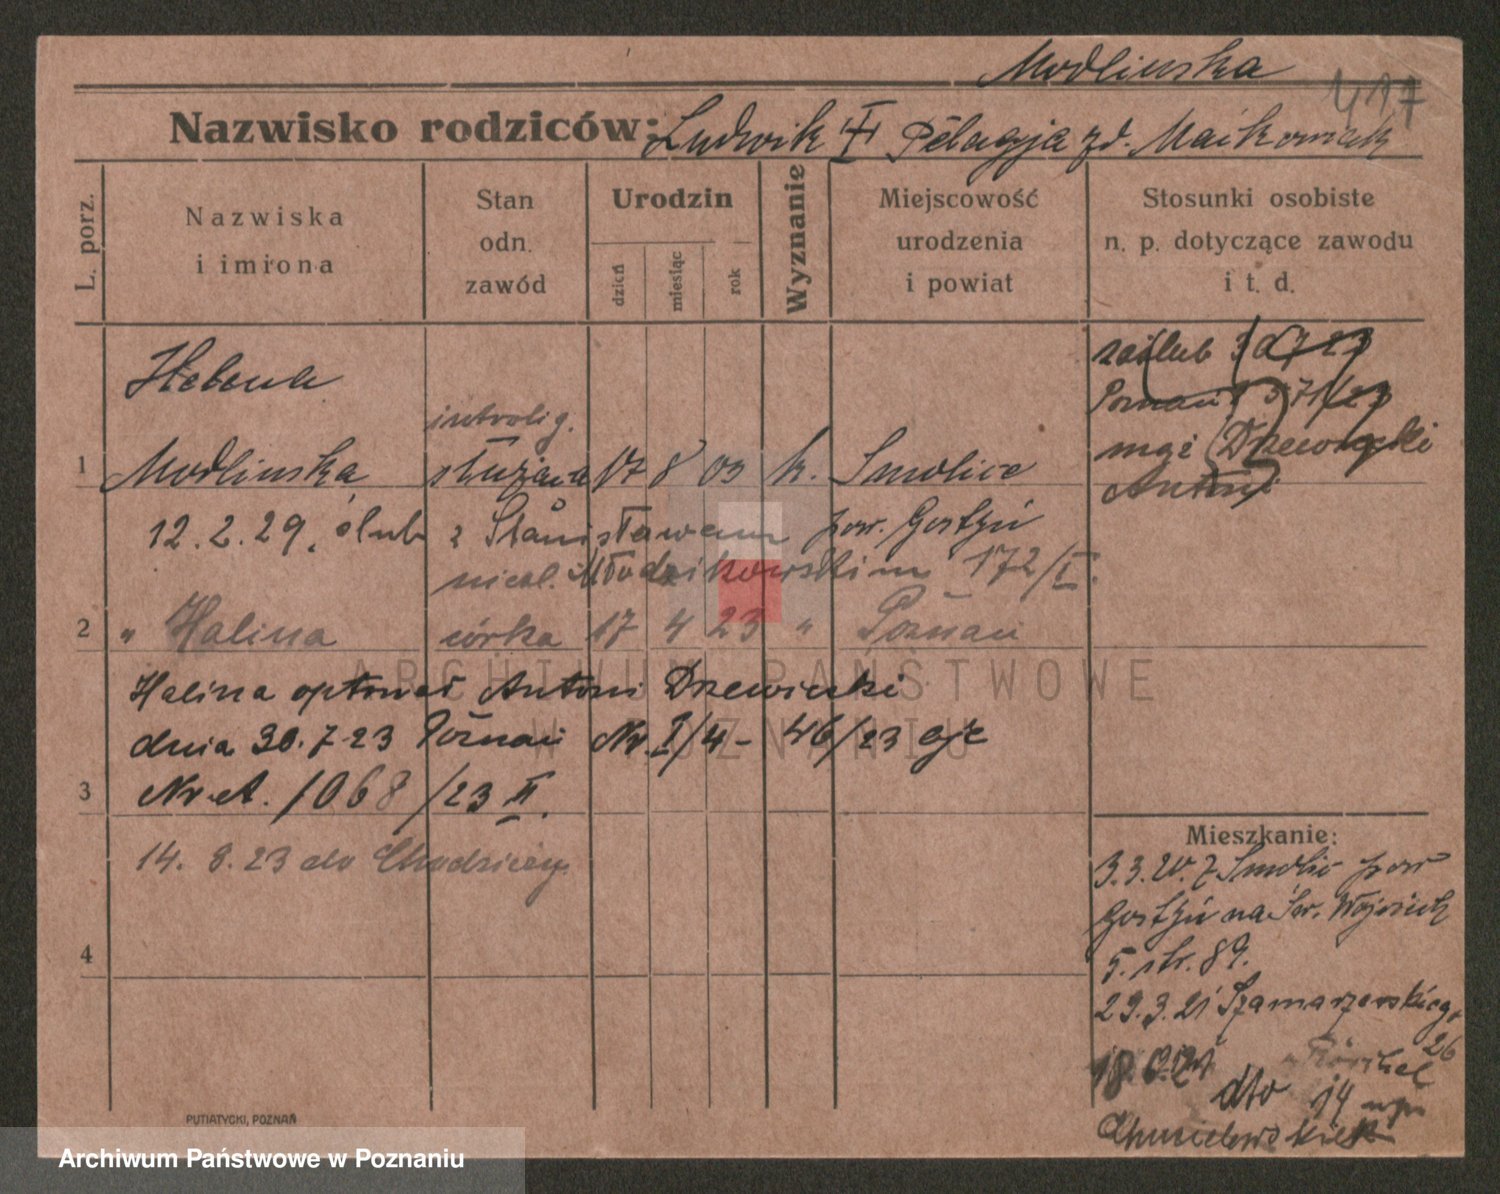 Modlinska
417
Nazwisko rodziców: Ludwik Pelagja zd.
L. porz.
Nazwiska
i imiona
Stan
odn.
zawód
Urodzin
dzień
miesiąc
rok
Wyznanie
Miejscowość
urodzenia
i powiat
Stosunki osobiste
n. p. dotyczące zawodu
i t. d.
Helena
introlig.
1 Modlinska służąca 17 8 03 k. Smolice
12.2.29. ślub z Stanisławem pow. Gostyń
Młodzikowskim 172/I.
2 " Halina córka 17 4 23 " Poznań
Halina Antoni Drzewiecki
dnia 30.7.23 Poznań Nr. I/4 - 46/23
3 Nr. A. 1068/23 II.
14. 8. 23 do Chodzieży
4
zaślub
Poznań
mąż Drzewiecki
Antoni
Mieszkanie:
3.3.20. z Smolic pow
Gostyń na Św. Wojciech
5. str. 89.
29.3.21 Szamarzewskiego
26
dto 14
PUTIATYCKI, POZNAŃ
ARCHIWUM PAŃSTWOWE
W POZNANIU
Archiwum Państwowe w Poznaniu